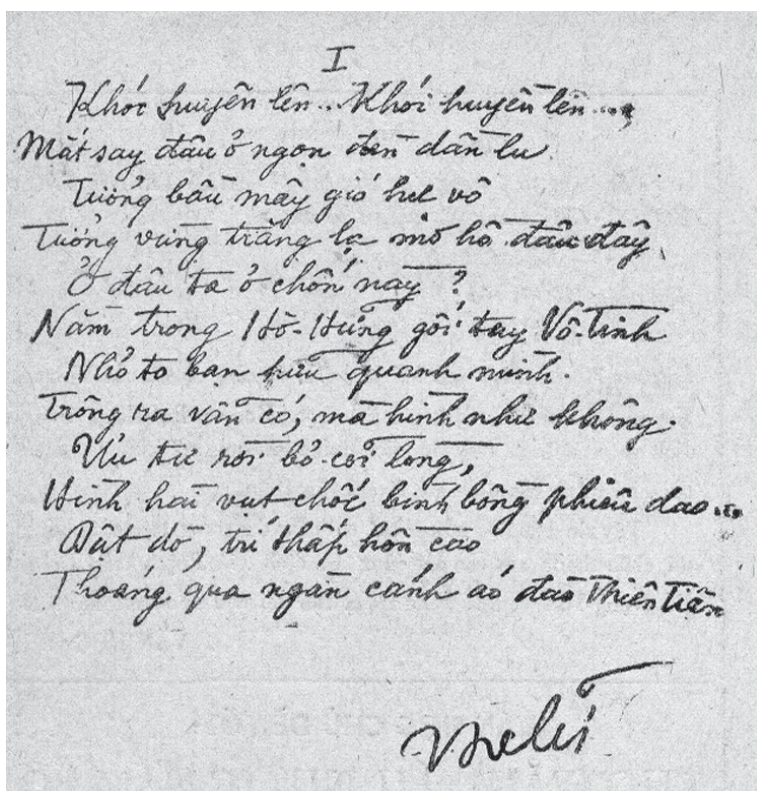 I
Khói huyền lên... Khói huyền lên...,
Mắt say đâu ở ngọn đèn dần lu
Tưởng bầu mây gió hư vô
Tưởng vùng trăng lạ mơ hồ đâu đây
Ở đâu ta ở chốn này ?
Nằm trong Hồ-Hưng gối tay Vô-Tình
Nhỏ to bạn hữu quanh mình.
Trông ra vẫn có, mà hình như không.
Ưu tư rời bỏ cõi lòng,
Hình hài vụt chốc bính bồng phiêu dao...
Dật dờ, trí thấp hồn cao
Thoáng qua ngàn cánh áo đào Thiên Tiên